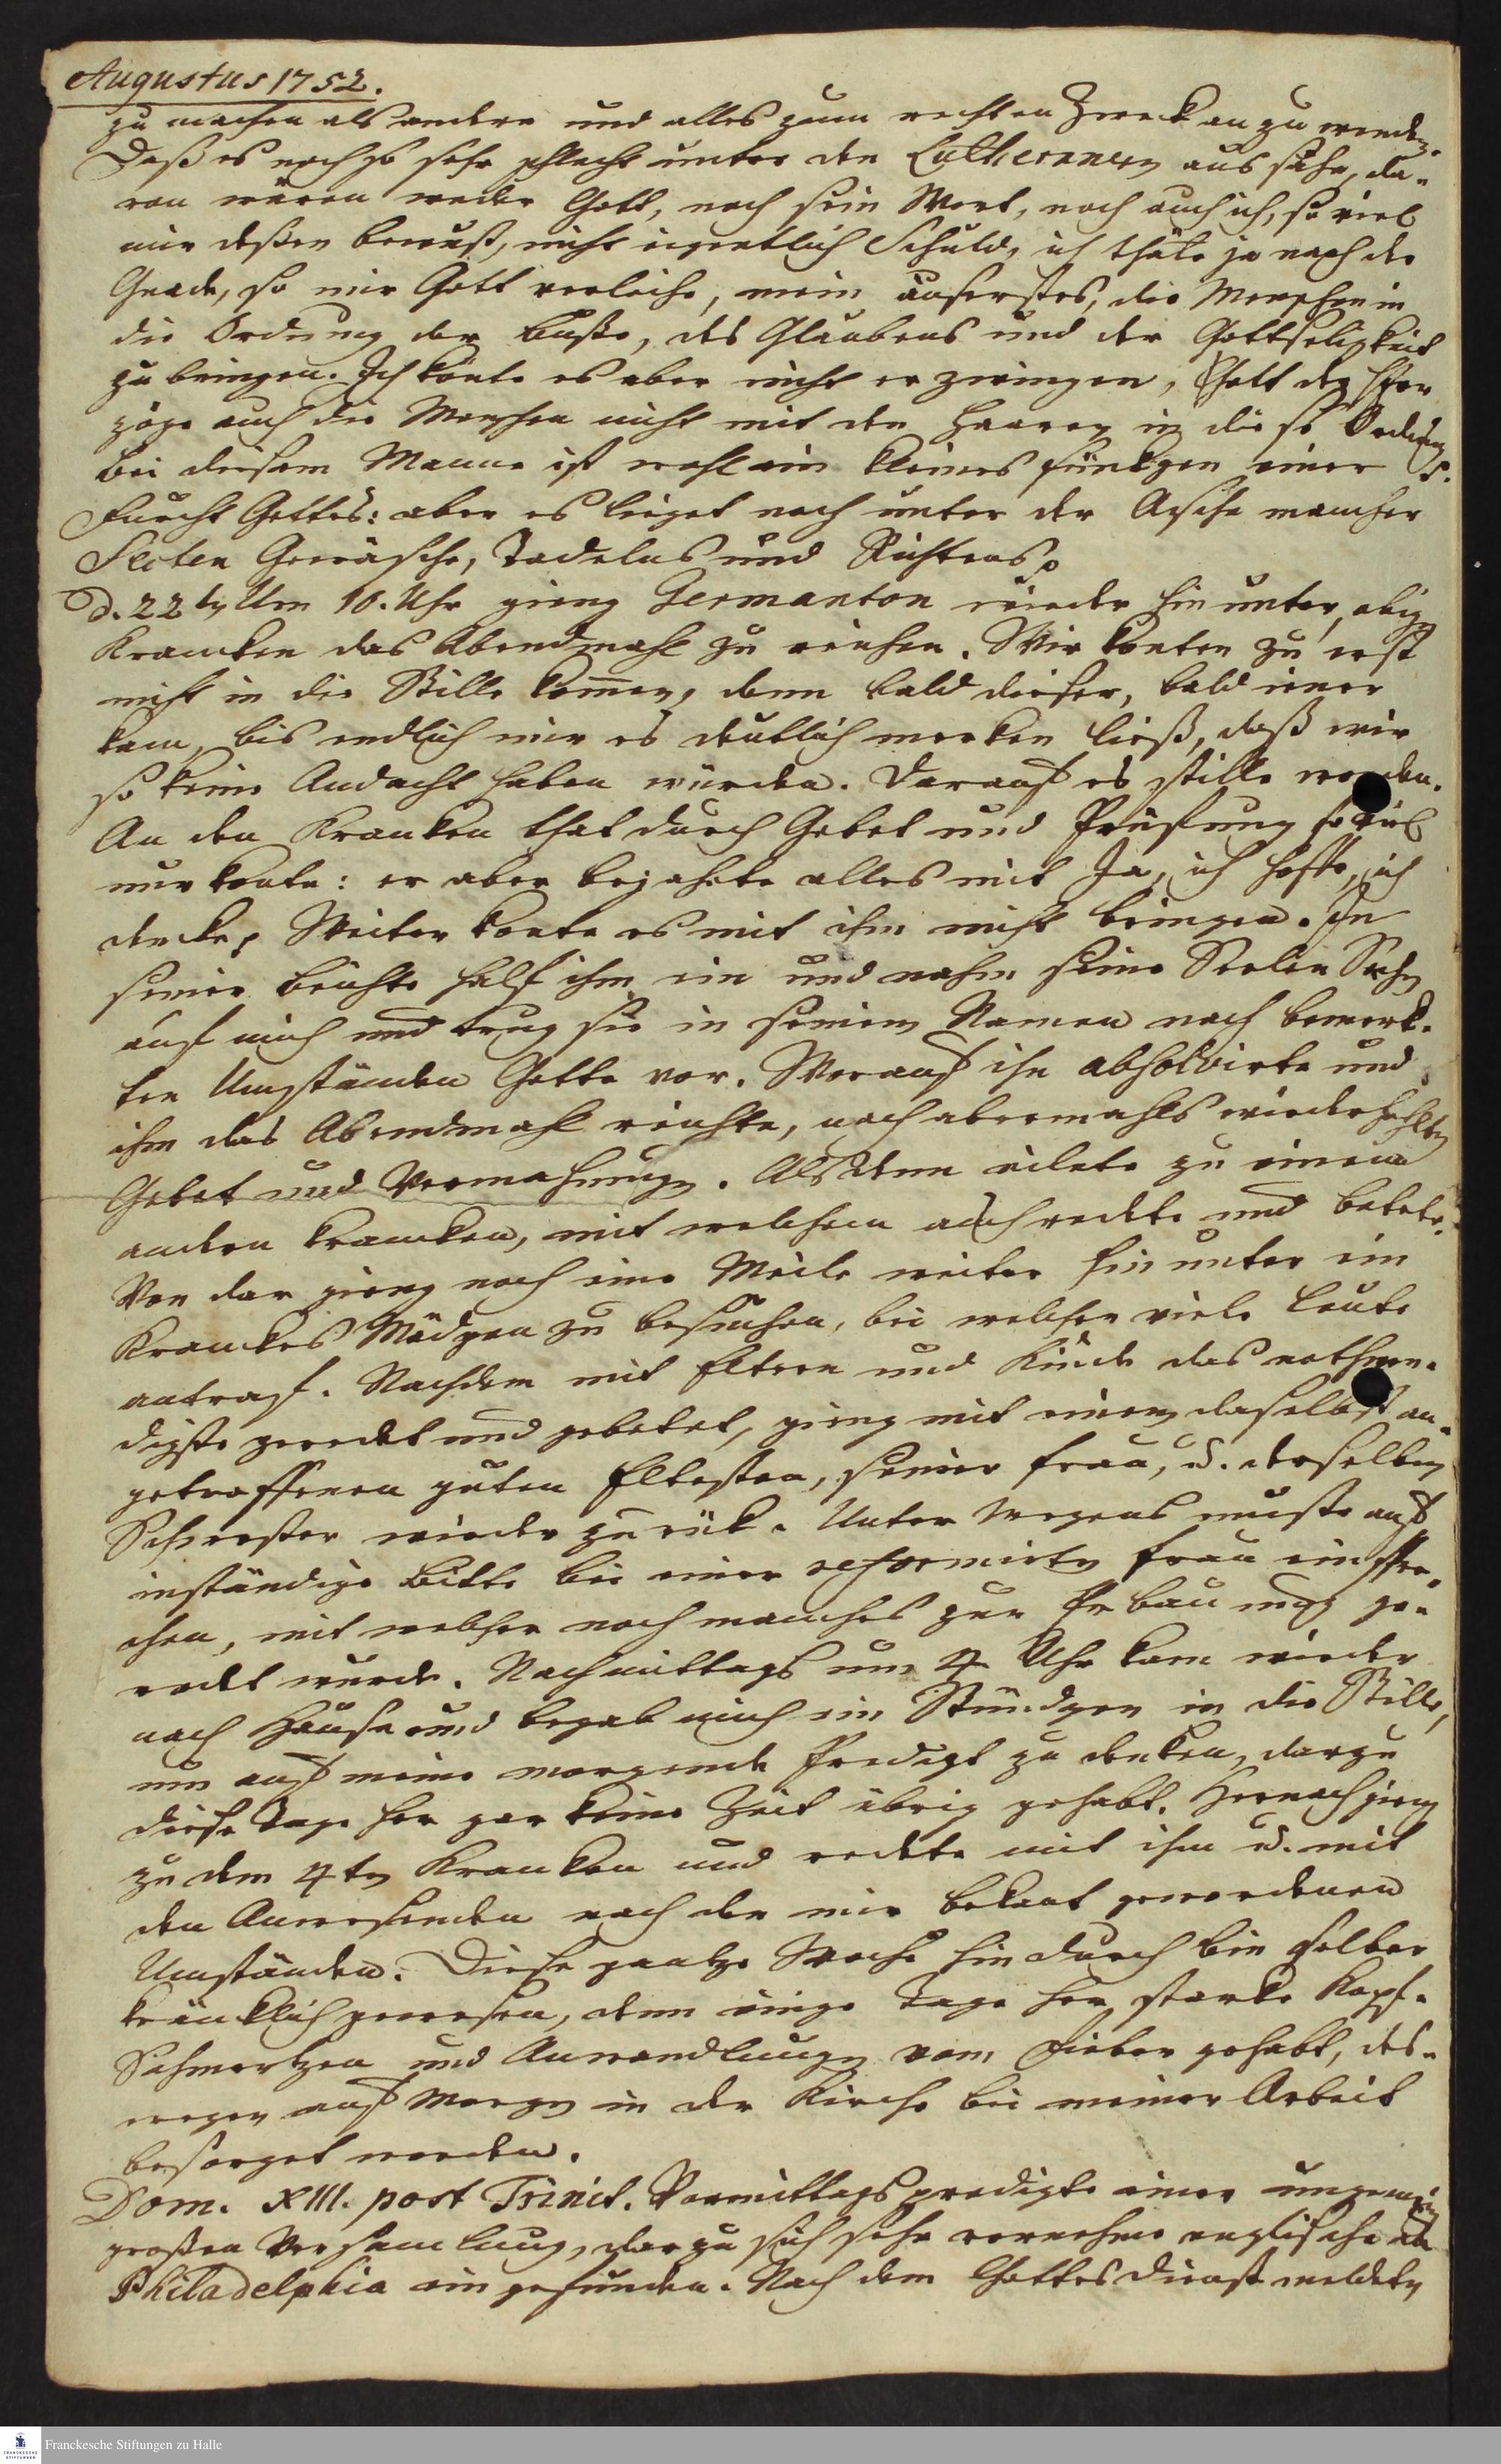 Augustus 1752.
zu machen als andere und alles zum rechten Zweck an zu wenden.
Daß es noch so sehr schlecht unter den Lutheranern aus sähe, da-
ran wären weder Gott, noch sein Wort, noch auch ich, so viel
mir deßen bewust, nicht eigentlich Schuld, ich thäte ja nach der
Gnade, so mir Gott verleihe, mein äuserstes, die Menschen in
die Ordnung der Buße, des Glaubens und der Gottseligkeit
zu bringen. Ich könte es aber nicht er zwingen, Gott der Herr
zöge auch die Menschen nicht mit den Haaren in diese Ordnung
bei diesem Manne ist wohl ein kleines fünkgen einer
Furcht Gottes: aber es lieget noch unter der Asche mancher
Secten Gewäsche, Tadelns und Richtens
d. 22ten Um 10. Uhr gieng Germanton wieder hin unter, obigen
Krancken das Abendmahl zu reichen. Wir konten zu erst
nicht in die Stille kommen, denn bald dieser, bald iener
kam, bis endlich mir es deutlich merken ließ, daß wir
so keine Andacht haben würden. Darauf es stille worden.
An den Kranken that durch Gebet und Prüfung so viel
nur konte: er aber bejahete alles mit Ja, ich hoffe, ich
dencke, Weiter konte es mit ihm nicht bringen. In
seiner Beichte half ihm ein und nahm seine Seelen Sache
auf mich und trug sie in seinem Namen nach bemerk-
ten Umständen Gotte vor. Worauf ihn absolvirte und
ihm das Abendmahl reichte, nach abermahls wiederhohlten
Gebet und Vermahnungen. Als denn eilete zu einem
andern krancken, mit welchem auch redete und betete.
Von dar gieng noch eine Meile weiter hinunter ein
Kranckes Mädgen zu besuchen, bei welcher viele Leute
antraf. Nachdem mit Eltern und Kinde das nothwen-
digste geredet und gebetet, gieng mit einem daselbst an-
getroffenen guten Eltesten, seiner Frau, u. derselben
Schwester wieder zurük. Unter wegens muste auf
inständige Bitte bei einer reformirten Frau einspre-
chen, mit welcher noch manches zur Erbauung ge-
redet wurde. Nachmittags um 4 Uhr kam wieder
nach Hause und begab mich ein Stündgen in die Stille,
um auf meine morgende Predigt zu denken, darzu
diese Tage her gar keine Zeit übrig gehabt. Hernach gieng
zu dem 4ten Kranken und redete mit ihm u. mit
den Anwesenden nach den mir bekant gewordenen
Umständen. Diese gantze Woche hindurch bin selber
kränklich gewesen, denn einge Tage her starke Kopf-
Schmertzen und Anwandlungen vom Fieber gehabt, des-
wegen auf Morgen in der Kirche bei meiner Arbeit
besorget worden.
Dom. XIII. post Trinit. Vormittags predigte einer ungemein
großen Versamlung, dar zu sich sehr vornehme englische
Philadelphia ein gefunden. Nach dem Gottesdienst meldeten
Franckesche Stiftungen zu Halle